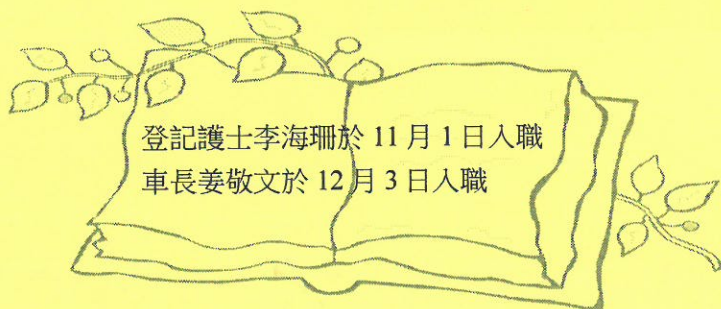 登記護士李海珊於 11 月 1 日入職
車長姜敬文於 12 月 3 日入職